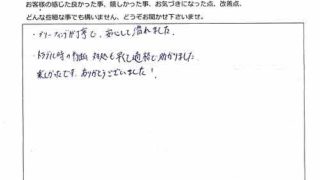 お客様の感じた良かった事、嬉しかった事、お気づきになった点、改善点、
どんな些細な事でも構いません、どうぞお聞かせ下さいませ。
・ブリーフィングが丁寧で、安心して潜れました。
・トラブル時の判断、対処も早く適確で助かりました。
楽しかったです。ありがとうございました！